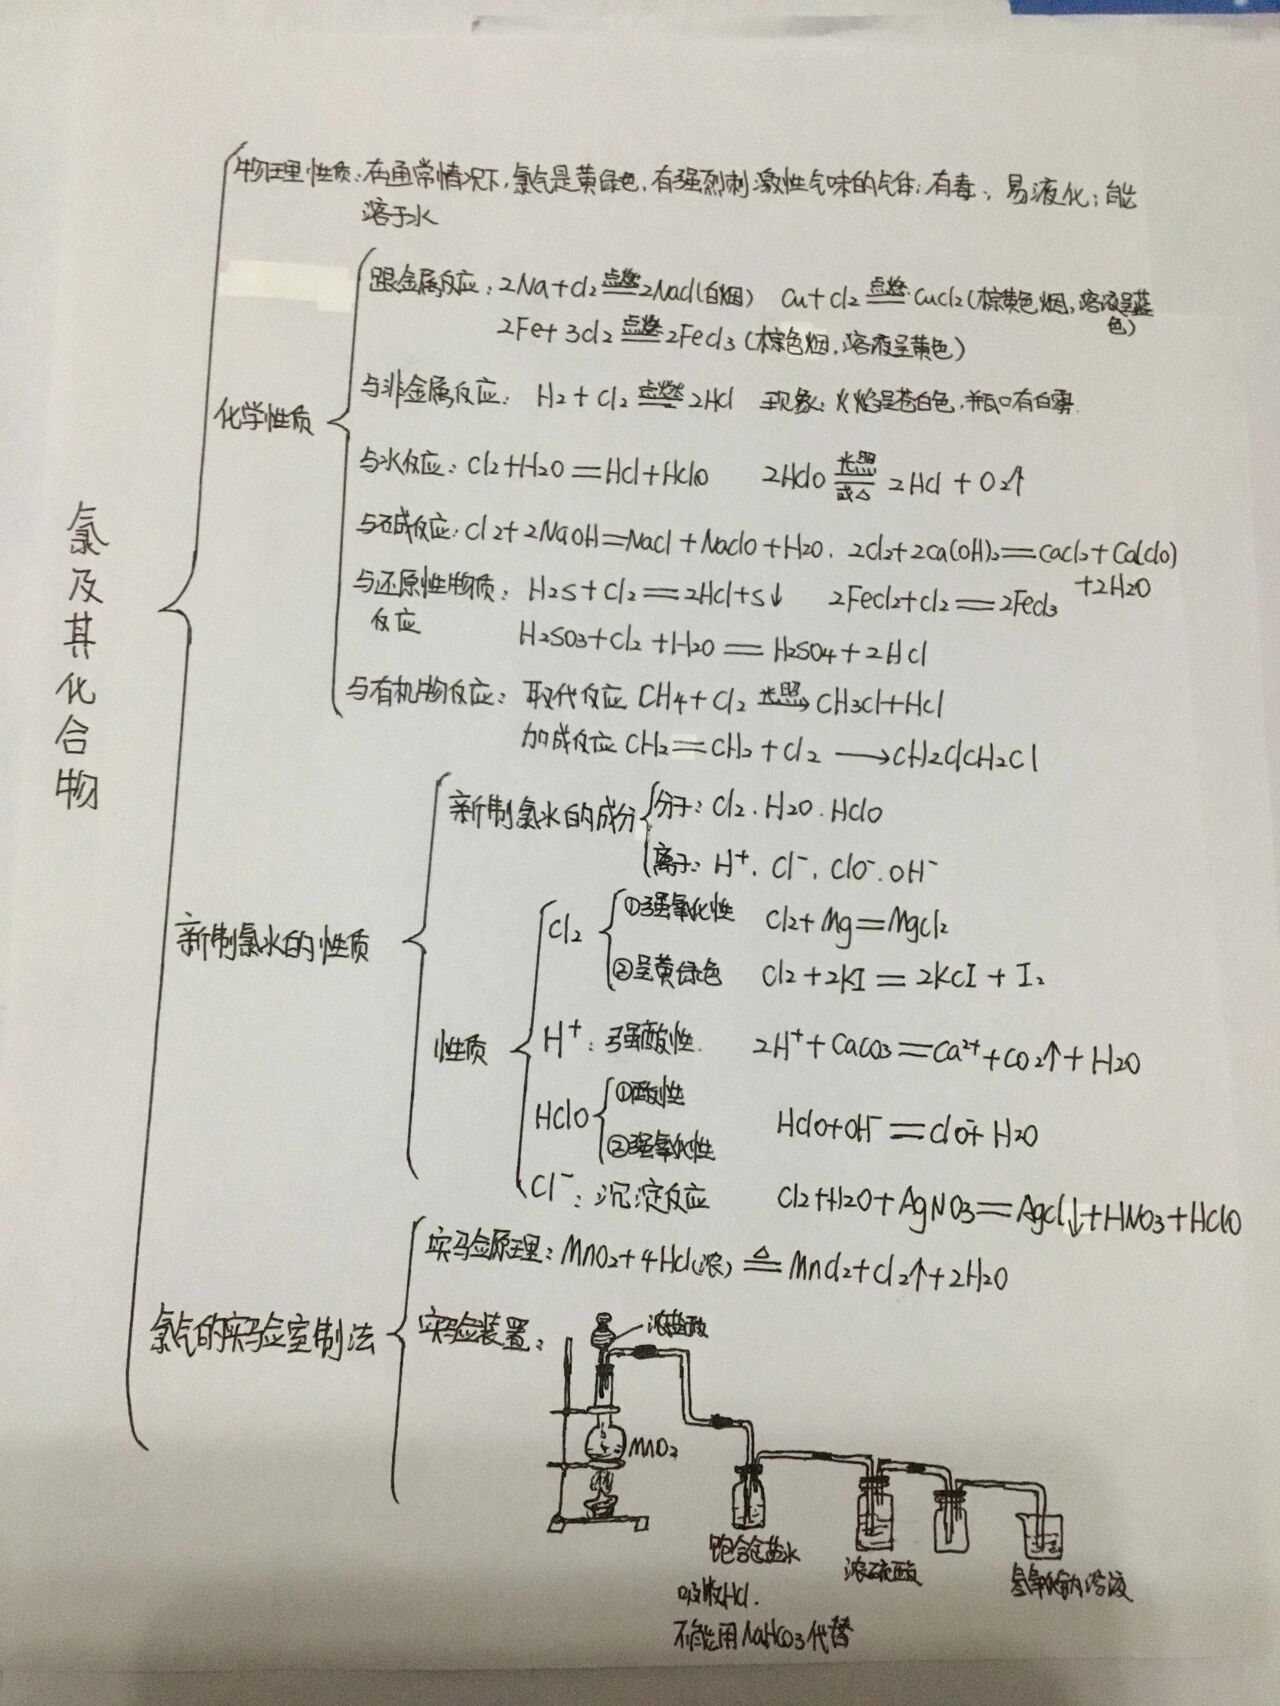 氯及其化合物
物理性质:在通常情况下,氯气是黄绿色,有强烈刺激性气味的气体;有毒;易液化;能
溶于水
化学性质
跟金属反应:2Na+Cl₂ 点燃══2NaCl(白烟) Cu+Cl₂ 点燃══CuCl₂(棕黄色烟,溶液呈蓝
色)
2Fe+3Cl₂ 点燃══2FeCl₃(棕色烟,溶液呈黄色)
与非金属反应: H₂+Cl₂ 点燃══2HCl 现象:火焰呈苍白色,瓶口有白雾.
与水反应:Cl₂+H₂O══HCl+HClO 2HClO 光照══或△ 2HCl+O₂↑
与碱反应:Cl₂+2NaOH══NaCl+NaClO+H₂O. 2Cl₂+2Ca(OH)₂══CaCl₂+Ca(ClO)
+2H₂O
与还原性物质: H₂S+Cl₂══2HCl+S↓ 2FeCl₂+Cl₂══2FeCl₃
反应
H₂SO₃+Cl₂+H₂O══H₂SO₄+2HCl
与有机物反应: 取代反应 CH₄+Cl₂ 光照→CH₃Cl+HCl
加成反应 CH₂══CH₂+Cl₂ →CH₂ClCH₂Cl
新制氯水的性质
新制氯水的成分
分子:Cl₂.H₂O.HClO
离子:H⁺.Cl⁻.ClO⁻.OH⁻
性质
Cl₂ ①强氧化性 Cl₂+Mg══MgCl₂
②呈黄绿色 Cl₂+2KI══2KCl+I₂
H⁺:强酸性. 2H⁺+CaCO₃══Ca²⁺+CO₂↑+H₂O
HClO ①酸性
②强氧化性 HClO+OH⁻══ClO⁻+H₂O
Cl⁻:沉淀反应 Cl₂+H₂O+AgNO₃══AgCl↓+HNO₃+HClO
氯气的实验室制法
实验原理:MnO₂+4HCl(浓) △══MnCl₂+Cl₂↑+2H₂O
实验装置:
浓盐酸
MnO₂
饱合食盐水
浓硫酸
氢氧化钠溶液
吸收HCl.
不能用NaHCO₃代替